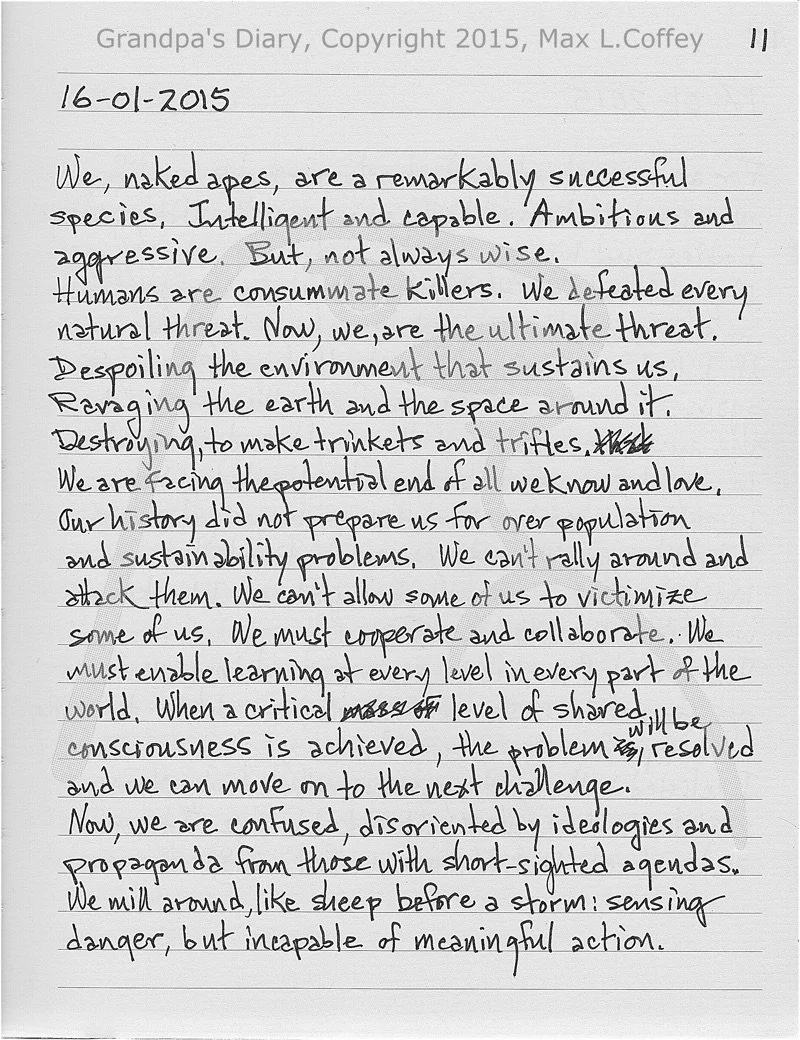 Grandpa's Diary, Copyright 2015, Max L.Coffey 11
16-01-2015
We, naked apes, are a remarkably successful
species. Intelligent and capable. Ambitious and
aggressive. But, not always wise.
Humans are consummate killers. We defeated every
natural threat. Now, we, are the ultimate threat.
Despoiling the environment that sustains us,
Ravaging the earth and the space around it.
Destroying, to make trinkets and trifles.
We are facing the potential end of all we know and love.
Our history did not prepare us for over population
and sustainability problems. We can't rally around and
attack them. We can't allow some of us to victimize
some of us. We must cooperate and collaborate. We
must enable learning at every level in every part of the
world. When a critical mass of level of shared
consciousness is achieved, the problem will be resolved
and we can move on to the next challenge.
Now, we are confused, disoriented by ideologies and
propaganda from those with short-sighted agendas.
We mill around, like sheep before a storm: sensing
danger, but incapable of meaningful action.